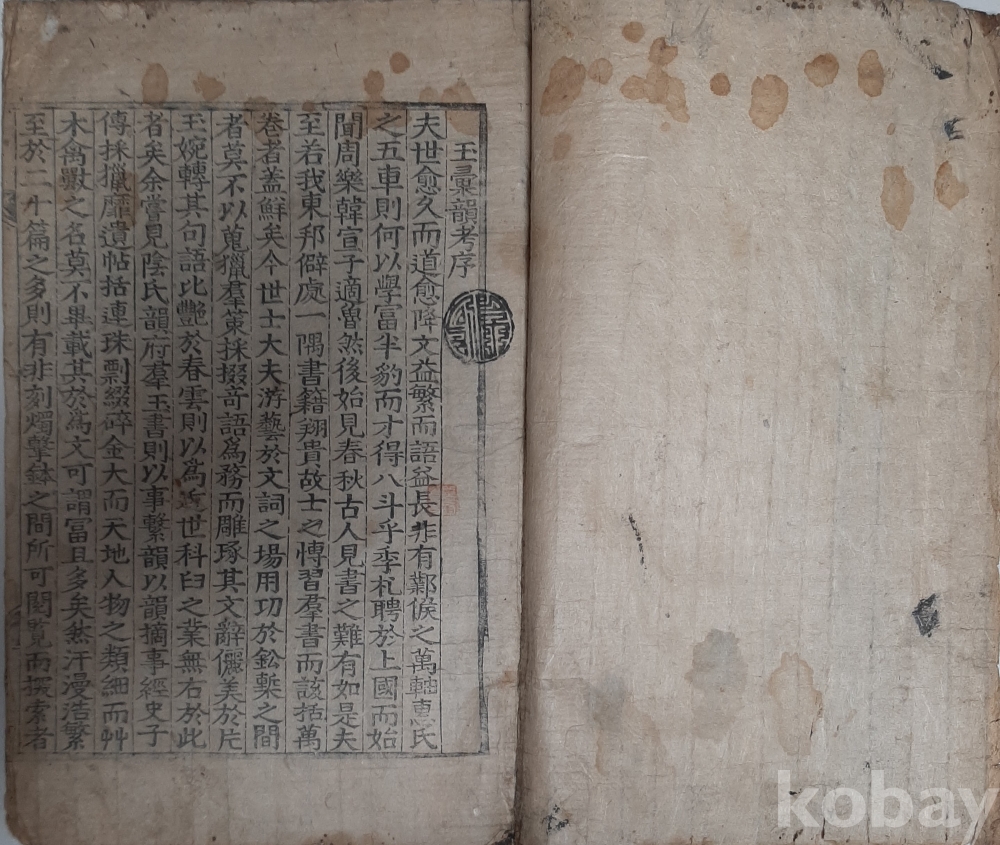 玉彙韻考序
夫世愈久而道愈降文益繁而語益長非有鄴侯之萬軸惠氏
之五車則何以學富半豹而才得八斗乎季札聘於上國而始
聞周樂韓宣子適魯然後始見春秋古人見書之難有如是夫
至若我東邦僻處一隅書籍翔貴故士之愽習羣書而該括萬
卷者蓋鮮矣今世士大夫游藝於文詞之場用功於鈆槧之間
者莫不以蒐獵羣策採掇奇語爲務而雕琢其文辭儷美於片
玉婉轉其句語比艶於春雲則以爲近世科臼之業無右於此
者矣余嘗見陰氏韻府羣玉書則以事繫韻以韻摘事經史子
傳採獵靡遺帖括連珠剽綴碎金大而天地人物之類細而艸
木禽獸之名莫不畢載其於爲文可謂富且多矣然汗漫浩繁
至於二十篇之多則有非刻燭擊鉢之間所可閱覧而探索者
kobay